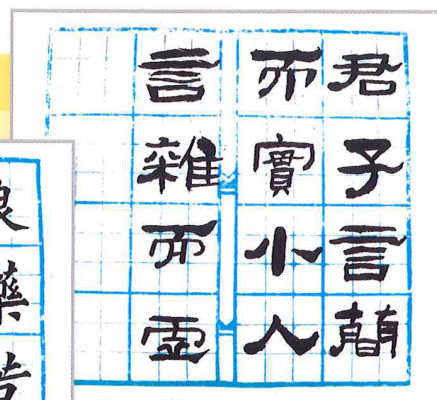 君子言簡
而實小人
言雜而虛
良藥苦